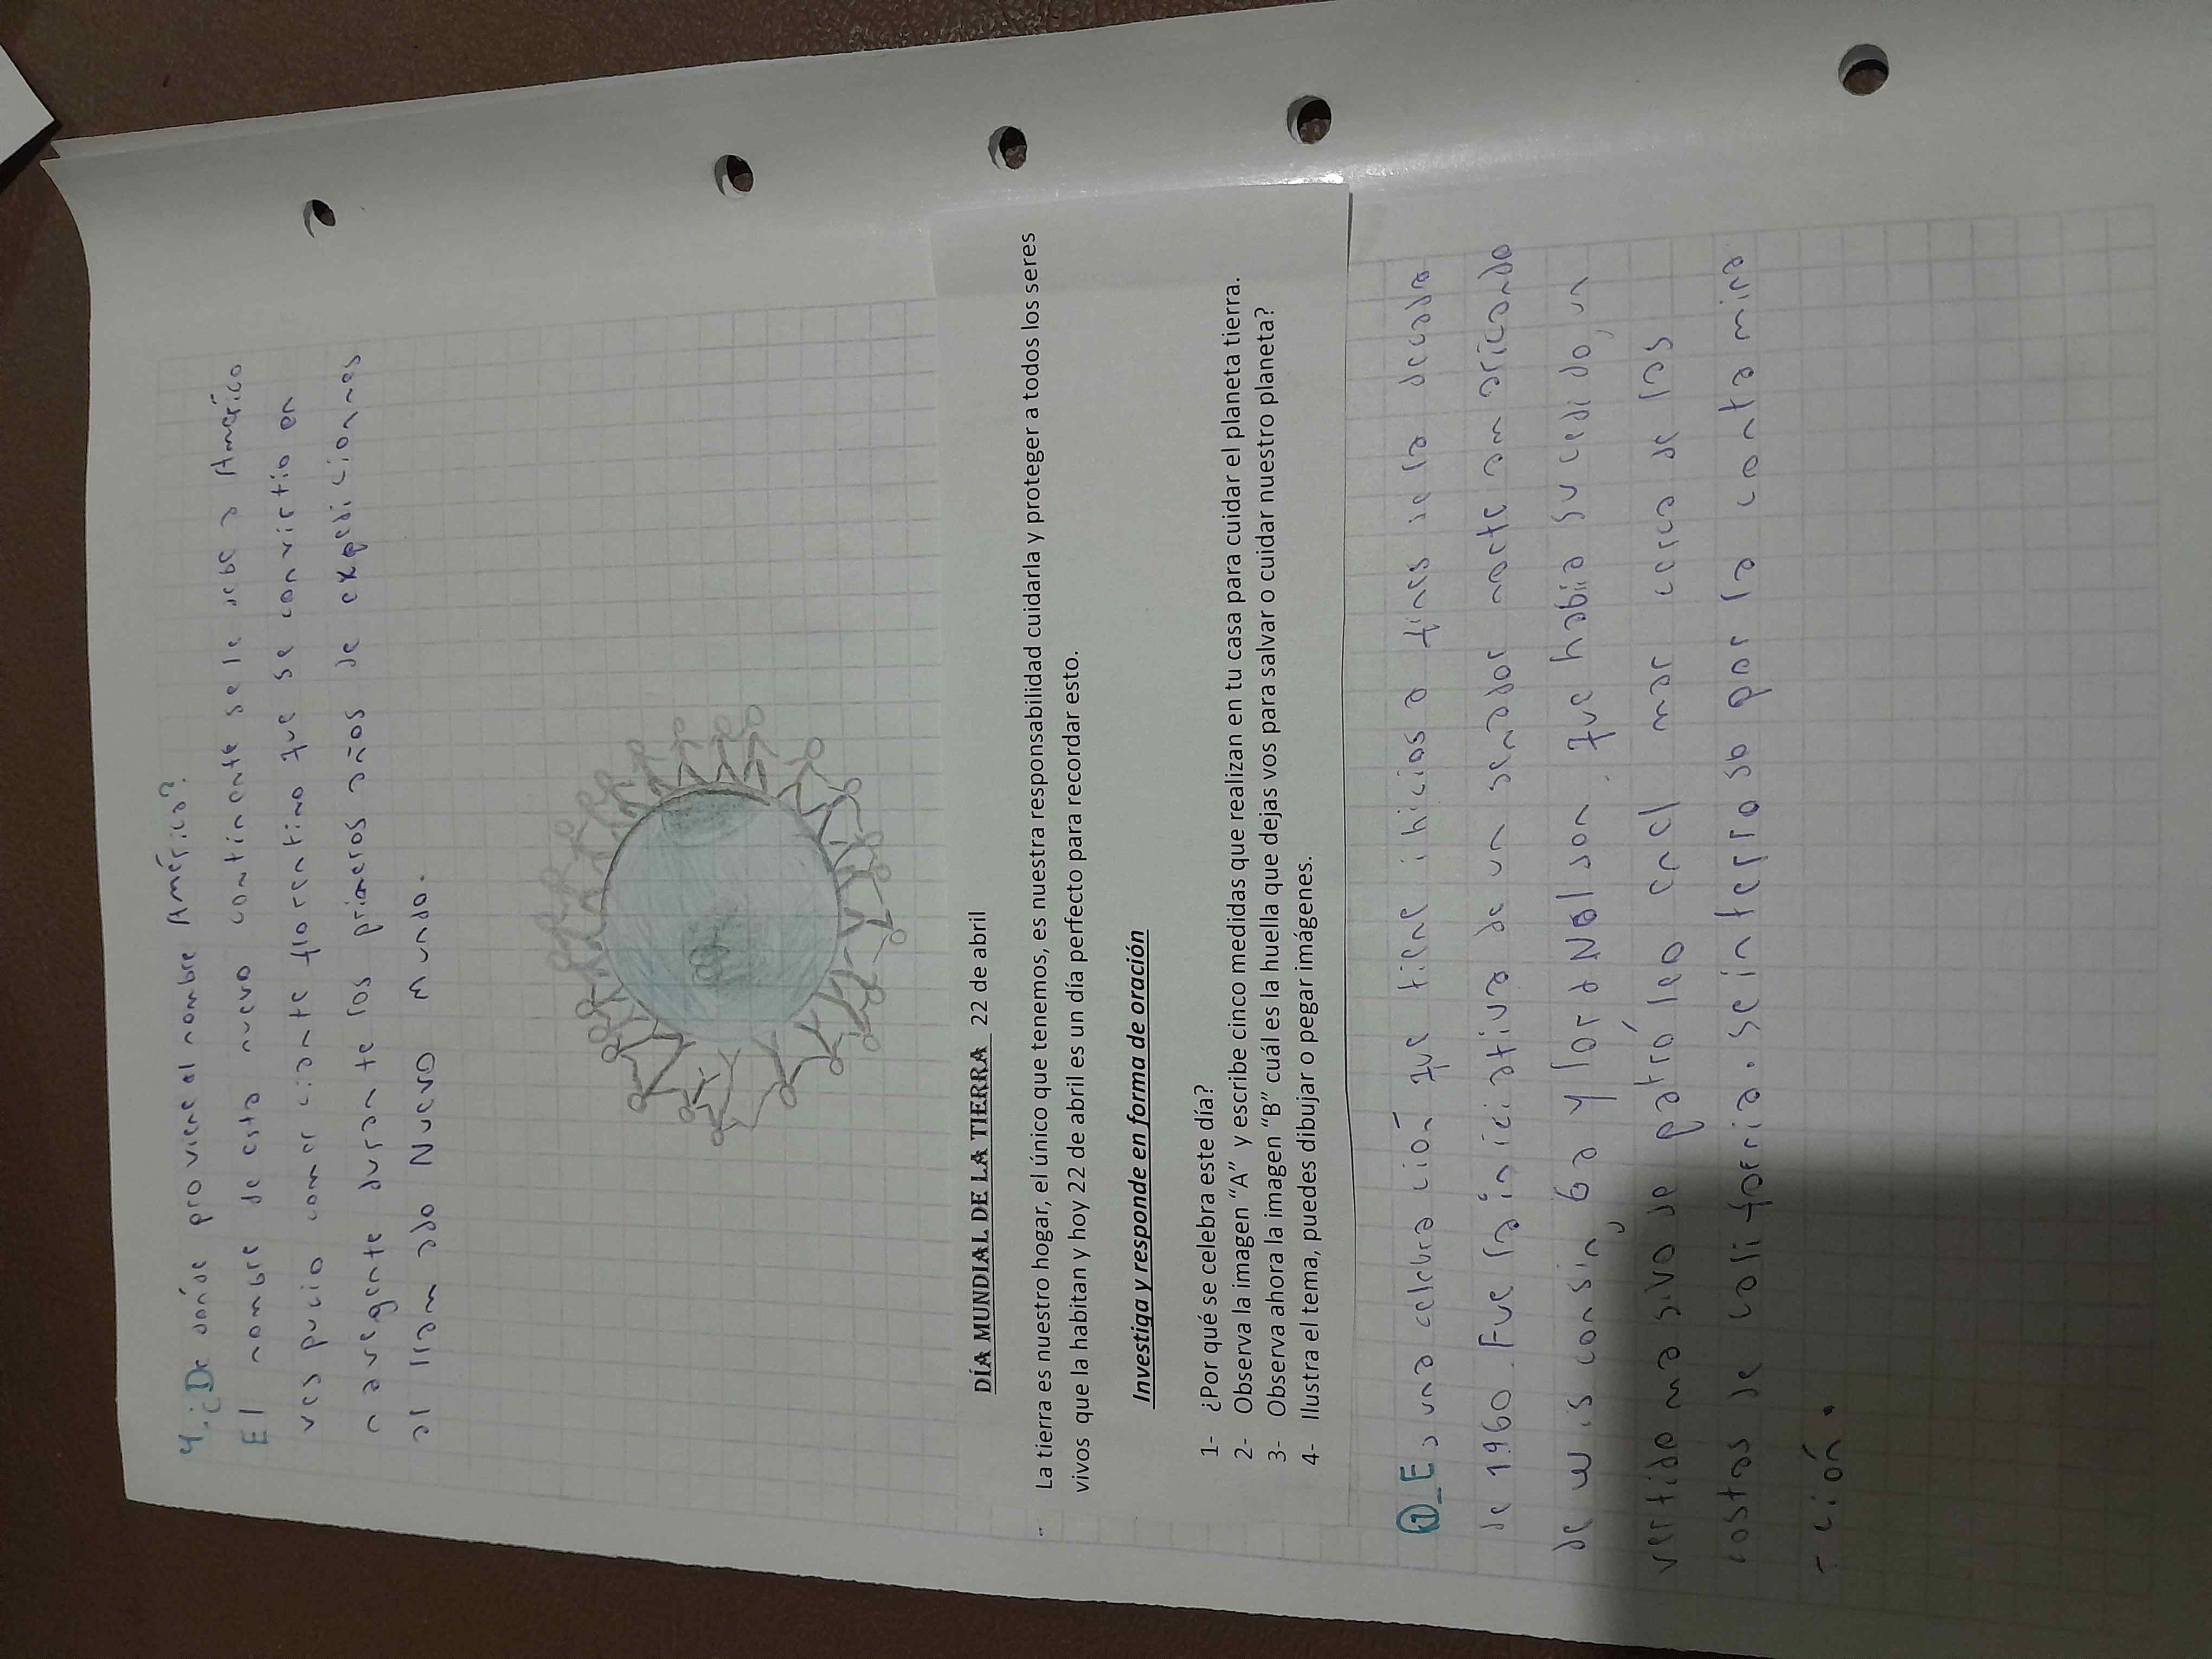 4.¿De dónde proviene el nombre América?
El nombre de este nuevo continente se le debe a Américo
vespucio comerciante florentino que se convirtio en
navegante durante los primeros años de expediciones
al llamado Nuevo mundo.
DÍA MUNDIAL DE LA TIERRA 22 de abril
La tierra es nuestro hogar, el único que tenemos, es nuestra responsabilidad cuidarla y proteger a todos los seres
vivos que la habitan y hoy 22 de abril es un día perfecto para recordar esto.
Investiga y responde en forma de oración
1- ¿Por qué se celebra este día?
2- Observa la imagen “A” y escribe cinco medidas que realizan en tu casa para cuidar el planeta tierra.
3- Observa ahora la imagen “B” cuál es la huella que dejas vos para salvar o cuidar nuestro planeta?
4- Ilustra el tema, puedes dibujar o pegar imágenes.
1_Es una celebración que tiene inicios a fines de la decada
de 1960. Fue la iniciativa de un senador norte americando
de wisconsin, Gaylord Nelson. que había sucedido, un
vertido masivo de petróleo en el mar cerca de las
costas de california. se interloso por la contamina
-ción.